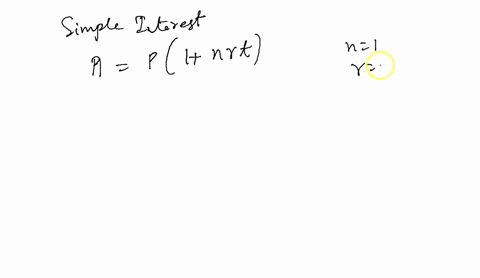 Simple Interest
A = P(1+ nrt)
n=1
r=.